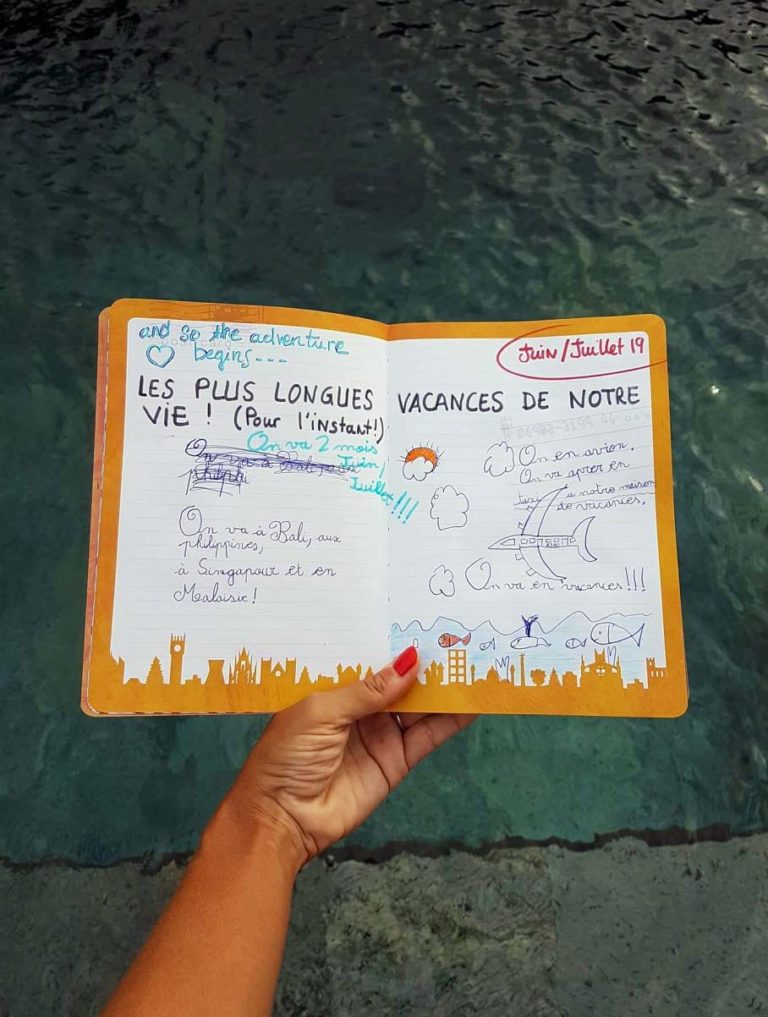 and so the adventure
begins---
Juin/Juillet 19
LES PLUS LONGUES VACANCES DE NOTRE
VIE ! (Pour l'instant!)
On va 2 mois
Juin/
Juillet!!!
On va à Bali,
On va à Bali, aux
philippines,
à Singapour et en
Malaisie!
On en avion.
On va aprer en
taxi a notre maison
de vacances.
On va en vacances!!!